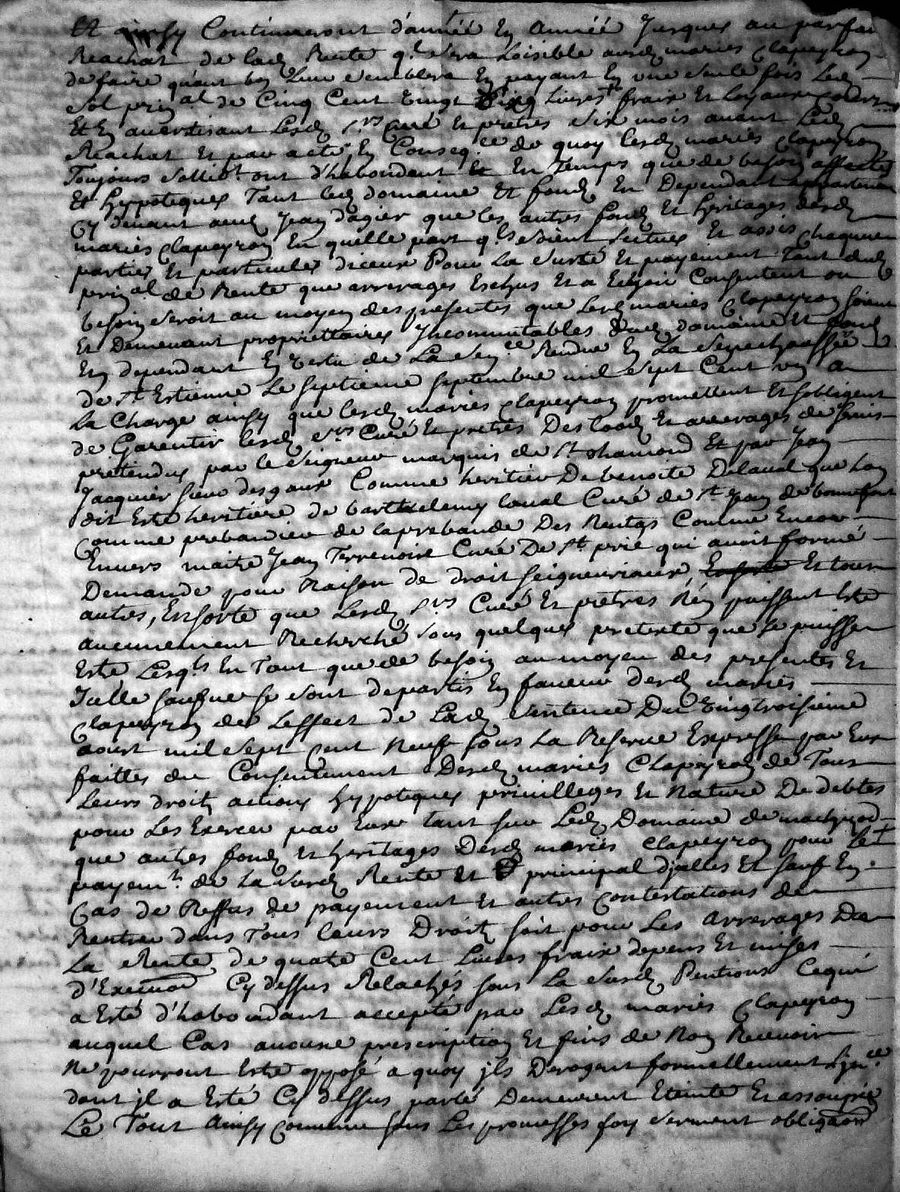 Et ainsy Continueront d'année En Année Jusques au parfait
Reachat de lad Rente qu'il sera Loisible ausd mariés Clapeyron
de faire quant bon Leur semblera En payant En une seule fois Led
sol prinal de Cinq Cent Vingt Cinq Livres frais Et loyaux
Et En avertissant Lesd srs Curé Et pretres six mois avant Led
Reachat Et par acte En Conseqce de quoy lesd mariés Clapeyron
Toujours d'habondant Et En Temps que de besoin affectés
Et hyppotiqués Tant led domaine Et fond En Dependant
Cy devant a Jean dagier que les autres fonds Et heritages desd
mariés Clapeyron En quelle part qu'ils soient scitués Et assis Chaque
parties Et particules diceux Pour La surté Et payement Tant dud
prinal de Rente que arrerages Escheus Et a Echeoir Consentent ou
besoin seroit au moyen des presentes que Lesd mariés Clapeyron soient
Et Demeurent proprietaires Incommutables dud domaine Et fond
En dependant En vertu de La Rendue En La senechaussée
de St Estienne Le septieme septembre mil sept Cent un a
La Charge ainsy que lesd mariés Clapeyron promettent Et sobligent
de Garentir lesd srs Curé Et pretres Des Loods Et arrerages de
pretendus par le seigneur marquis de St chamond Et par Jean
Jacquier sieur desgaux Comme heritier De benoite Delaval que Lon
dit Estre heritiere de barthelemy laval Curé de St Jean de bonnefont
Comme prebandier de la prebande Des Comme Encor
Envers maitre Jean Terrenoire Curé De St prié qui avoit formé
Demande pour Raison de droit seigneuriaux Et tous
autres, Ensorte que Lesd srs Curé Et pretres N'En puissent Estre
aucunement Recherché sous quelques pretexte que se puisse
Estre Lesqls En Tant que de besoin au moyen des presentes Et
se sont departis En faveur desd mariés
Clapeyron de Leffect de Lad sentence Du Vingtroisieme
aoust mil sept cent Neuf sous La Reserve Expresse par Eux
faittes du Consentement Desd mariés Clapeyron de Tous
Leurs droits actions hyppotiques privilleges Et Nature De debtes
pour Les Exercer par Eux tant sur Led Domaine de
que autres fond Et heritages Desd mariés Clapeyron pour le
payemt de La susd Rente Et principal d'jcelles Et sauf En
Cas de Reffus de payement Et autres Contestations de
Rentrer dans Tous leurs Droits soit pour Les Arrerages De
La Rente de quatre Cent Livres frais depens Et mises
d'Execution Cy dessus Relachés sous La susd Ce qui
a Esté d'habondant accepté par Lesd mariés Clapeyron
auquel Cas aucune prescription Et fins de Non Recevoir
Ne pourront Estre opposé a quoy jls Derogent formellement
dont jl a Esté Cy dessus parlé Demeurent Eteinte Et assoupie
Le Tout Ainsy Comme sous Les promesses foy serment obligaon